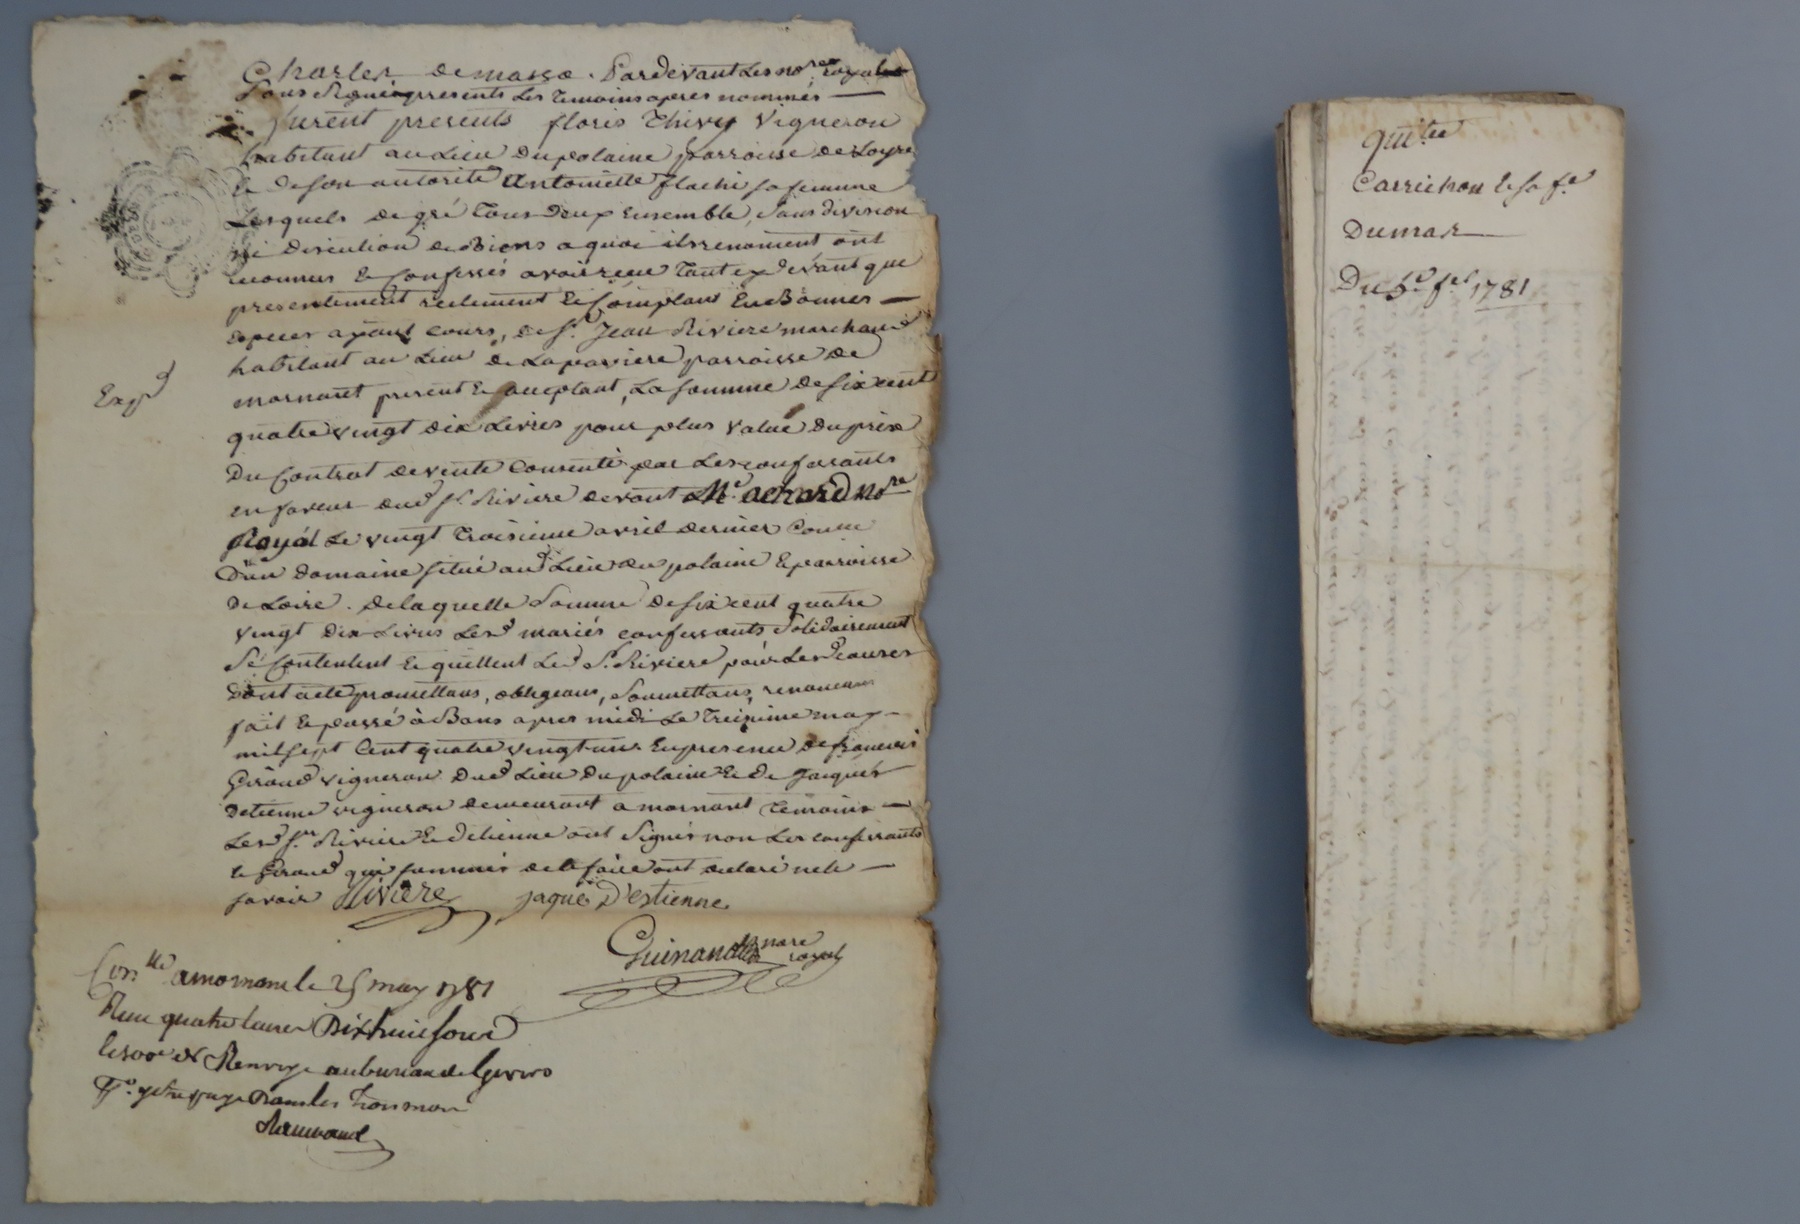 Charles de masso. Pardevant Les no.res royal
Sous Signés presents Les temoins apres nommés —
furent presents flores Thivy Vigneron
habitant au Lieu du polaine parroisse de Loyre
& de son autorité Antoinette flachi sa femme
Lesquels de gré tous deux Ensemble, Sans division
ni discution de Biens a quoi ils renoncent ont
reconnus & Confessés avoir reçu tant cy devant que
presentement reelement & Comptant En Bonnes —
especes ayant cours, de Sr. Jean Riviere marchand
habitant au Lieu de Laparriere parroisse de
mornant present & acceptant, La somme de six cent
quatre vingt dix Livres pour plus value du prix
Du Contrat de vente Consenti par Les confessants
en faveur dud Sr. Riviere devant Me. achard No.re
Royal Le vingt troisieme avril dernier Comme
D'un domaine situé aud Lieu du polaine & parroisse
De Loire. de laquelle Somme de six cent quatre
vingt dix Livres Lesd mariés confessants Solidairement
Se Contentent & quittent Led Sr. Riviere pour Lesd causes
Dont acte promettans, obligeans, Soumettans, renoncans
fait & passé à Bans apres midi Le treisieme may —
mil sept Cent quatre vingt un. En presence de francois
Giraud vigneron dud Lieu du polaine & de Jacques
Detienne vigneron demeurant a mornant temoins —
Lesd Sr. Riviere & detienne ont Signés non Les confessants
& Giraud qui sommés de le faire ont declaré ne le —
savoir Riviere jaque D'estienne
Exp.d
Guinand nore
royal
Con.lle a mornant le 25 may 1781
Reçu quatre livres Dix huit sous
&
Renvoye au bureau de Givors
quit.ce
Carrichon & sa fe.
Dumas
Du 5e fer 1781